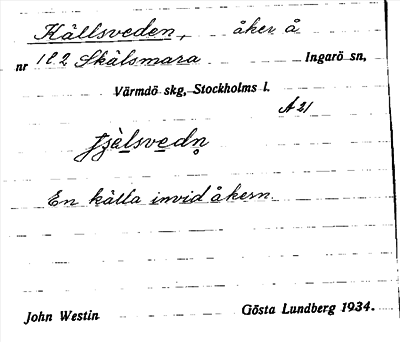 Källsveden, åker å
nr 1 l. 2 Skälsmara Ingarö sn,
Värmdö skg, Stockholms l.
A 21
En källa invid åkern
John Westin Gösta Lundberg 1934.